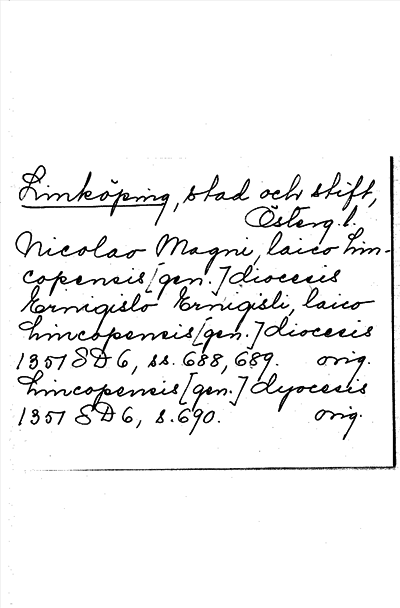 Linköping, stad och stift,
Österg.l.
Nicolao Magni, laico Lin-
copensis [gen.] diocesis
Ernigislo Ernigisli, laico
Lincopensis [gen.] diocesis
1351 SD 6, ss. 688, 689. orig.
Lincopensis [gen.] dyocesis
1351 SD 6, s. 690. orig.